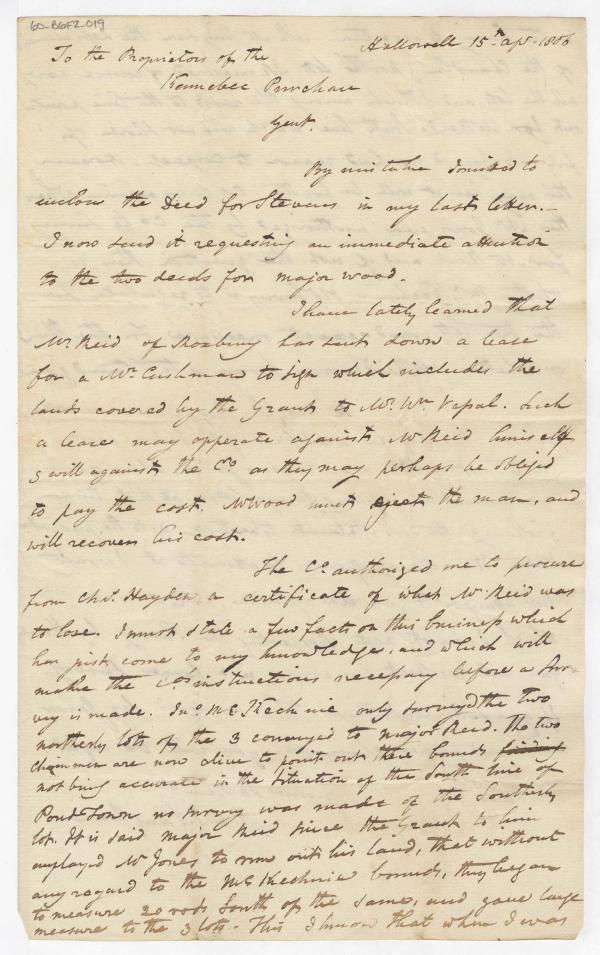 60-B6F2-019
Hallowell 15th apr. 1806
To the Proprietors of the
Kennebec Purchase
Gent.
By mistake I omitted to
enclose the Deed for Stevens in my last letter.
I now send it requesting an immediate attention
to the two deeds for major wood.
I have lately learned that
Mr. Reid of Roxbury has sent down a lease
for a Mr. Cushman to sign which includes the
lands covered by the Grant to Mr. Wm. Vassal. Such
a lease may opperate against Mr Reid himself
& will against the Co. as they may perhaps be obliged
to pay the cost. Mr Wood must eject the man, and
will recover his cost.
The Co. authorized me to procure
from Chs. Hayden a certificate of what Mr. Reid was
to lose. I must state a few facts on this business which
has just come to my knowledge, and which will
make the Co.s instructions necessary before a Sur-
vey is made. Jno. McKechnie only surveyd the two
northerly lots of the 3 conveyed to major Reid. The two
chainmen are now alive to point out there bounds
not being accurate in the situation of the South line of
Pond Town no survey was made of the Southerly
lot. It is said major Reid since the Grant to him
employed Mr Jones to run out his land, that without
any regard to the McKechnie bounds, they began
to measure 20 rods South of the same, and gave large
measure to the 3 lots. This I know that when I was